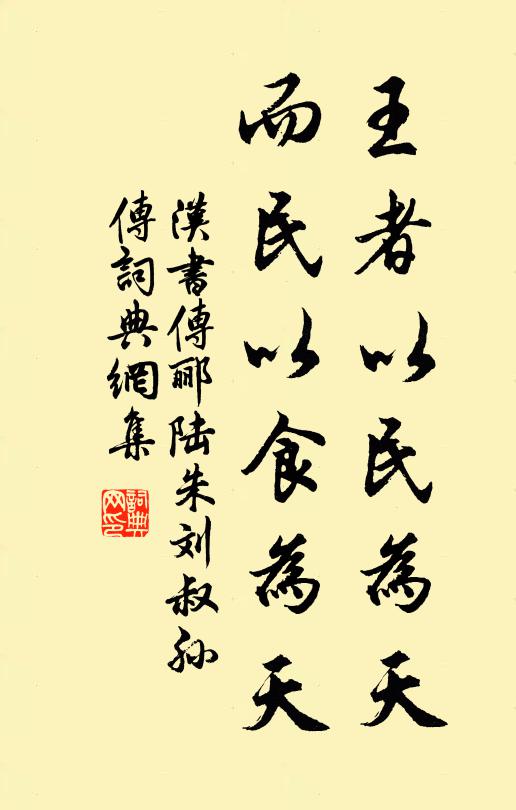 王者以民為天
而民以食為天
漢書傳酈陸朱刘叔孙
傳詞典網集
詞典网印